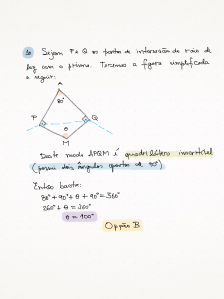 Sejam P e Q os pontos de interseção do raio de
luz com o prisma. Teremos a figura simplificada
a seguir:
A
80°
P
Q
θ
M
Deste modo APQM é quadrilátero inscritível
(possui dois ângulos opostos de 90°)
Então basta:
80° + 90° + θ + 90° = 360°
260° + θ = 360°
θ = 100°
Opção B